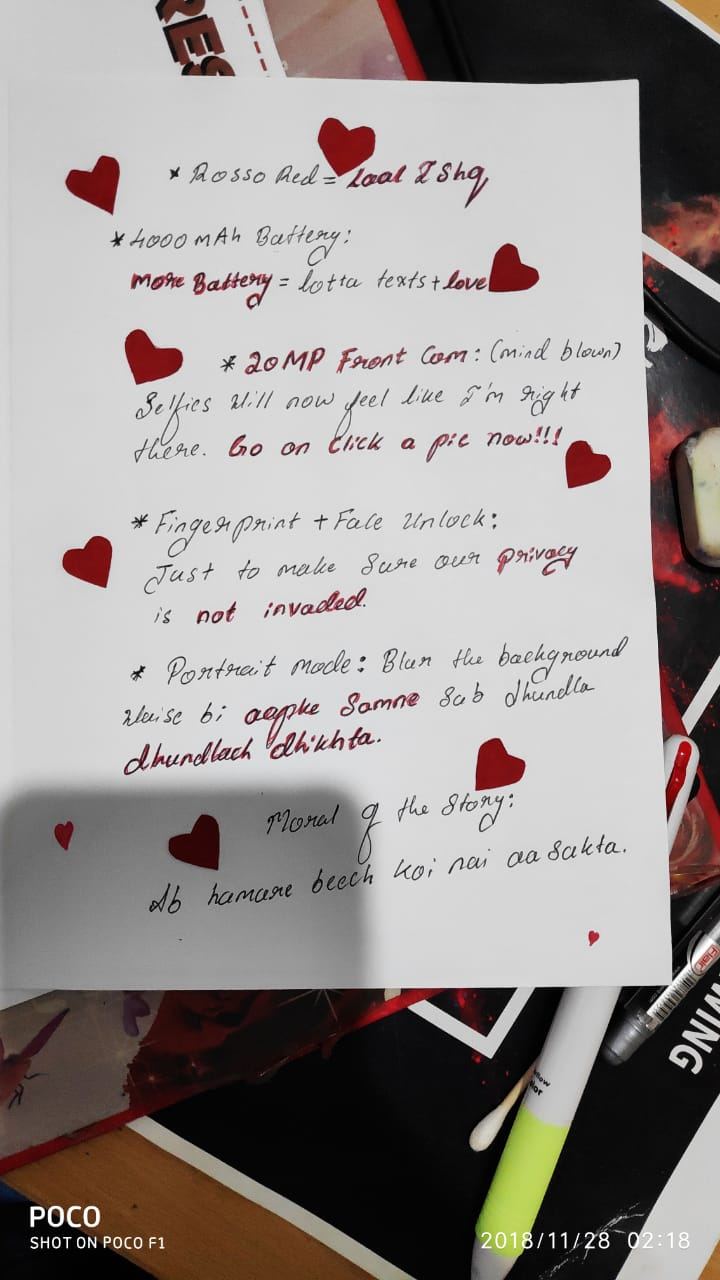 RES
* Rosso Red = Laal Ishq
* 4000 mAh Battery:
More Battery = lotta texts + love
* 20MP Front Cam: (mind blown)
Selfies will now feel like I'm right
there. Go on click a pic now!!!
* Fingerprint + Face Unlock:
Just to make sure our privacy
is not invaded.
* Portrait mode: Blur the background
Waise bi aapke Samne Sab dhundla
dhundlach dhikhta.
Moral of the Story:
Ab hamare beech koi nai aa Sakta.
Flair
WING
POCO
SHOT ON POCO F1
2018/11/28 02:18